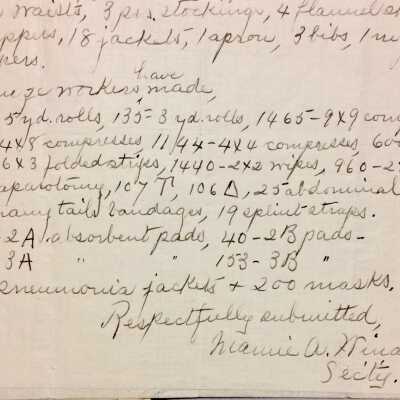 waists, 3 prs. stockings, 4 flannel
ppers, 18 jackets, 1 apron, 3 bibs, 1
pers.
workers have made,
5 yd. rolls, 135-3 yd. rolls, 1465-9x9 com
4x8 compresses, 1144-4x4 compresses, 600
6x3 folded strips, 1440-2x2 wipes, 960-2
aparotomy, 107 T, 106 Δ, 25 abdominal
many tails bandages, 19 splint straps.
2A absorbent pads, 40-2B pads-
3A " " 153-3B "
pneumonia jackets + 200 masks.
Respectfully submitted,
Mamie A.
Sec'ty.